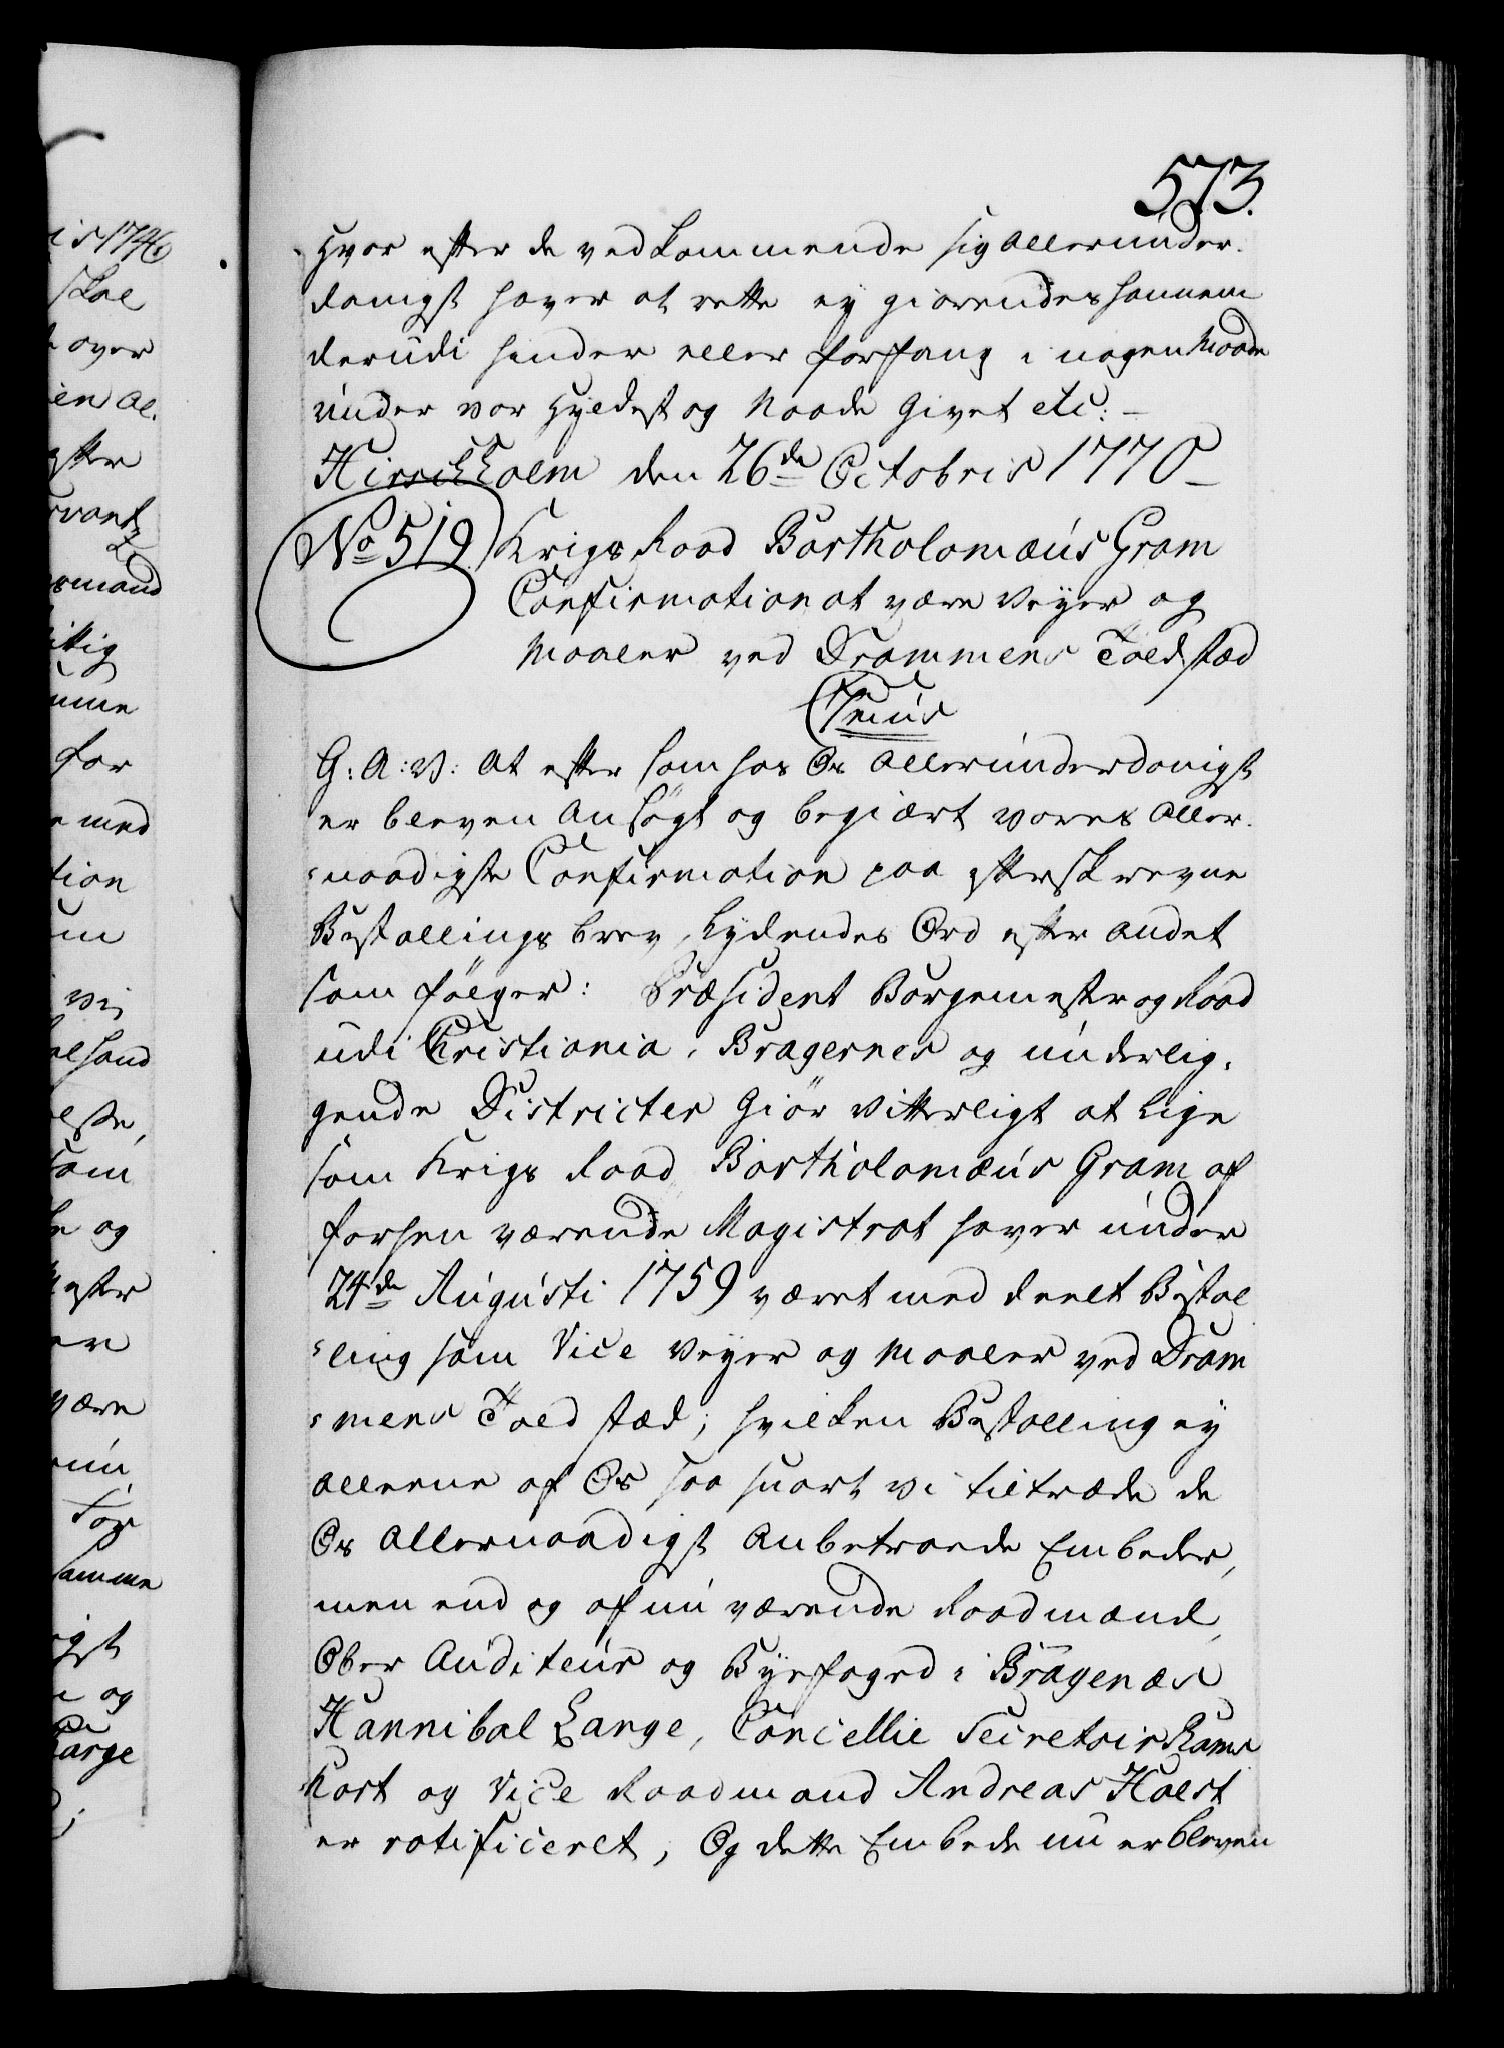 573.
Hvor efter de vedkommende sig allerunder-
danigst haver at rette ey giørendes hannem
derudi hinder eller forfang i nogen Maade
under vor Hyldest og Naade Givet etc: -
Hirschholm den 26de Octobris 1770 -
No 519. Krigs Raad Bartholomæus Gram
Confirmation at være Veyer og
Maaler ved Drammens Told stæd
G: A: V: At efter som hos Os Allerunderdanigst
er bleven Ansøgt og begiært Vores Aller-
naadigste Confirmation paa efterskrevne
Bestallings brev, Lydendes Ord efter andet
som følger: Præsident Borgemester og Raad
udi Christiania, Bragernes og underlig-
gende Districter Giør Vitterligt at Lige
som Krigs Raad Bartholomæus Gram af
forhen værende Magistrat haver under
24de Augusti 1759 været med deelt Bestal
ling som Vice Veyer og Maaler ved Dram
mens Told stæd; hvilken Bestalling ey
alleene af Os saa snart vi tiltræde de
Os Allernaadigst Anbetroede Embeder,
men end og af nu værende Raadmand,
Ober Auditeur og Byefoged i Bragenæs
Hannibal Lange, Cancellie Secretair Rams
hart og Vice Raadmand Andreas Holst
er ratificeret, Og dette Embede nu er bleven
is 1746
skal
over
en Al.
efter
mand
ittig
for
med
tion
um
vi
som
og
efter
være
samme
igst
og
Lange